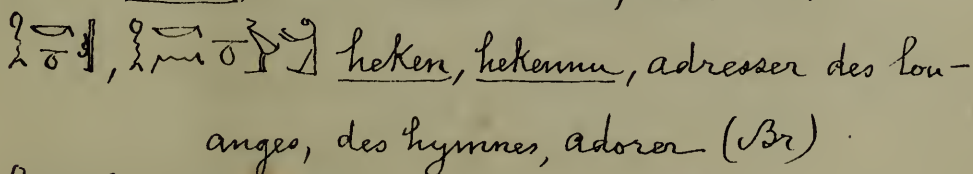 , heken, hekennu, adresser des lou-
anges, des hymnes, adorer (Br)